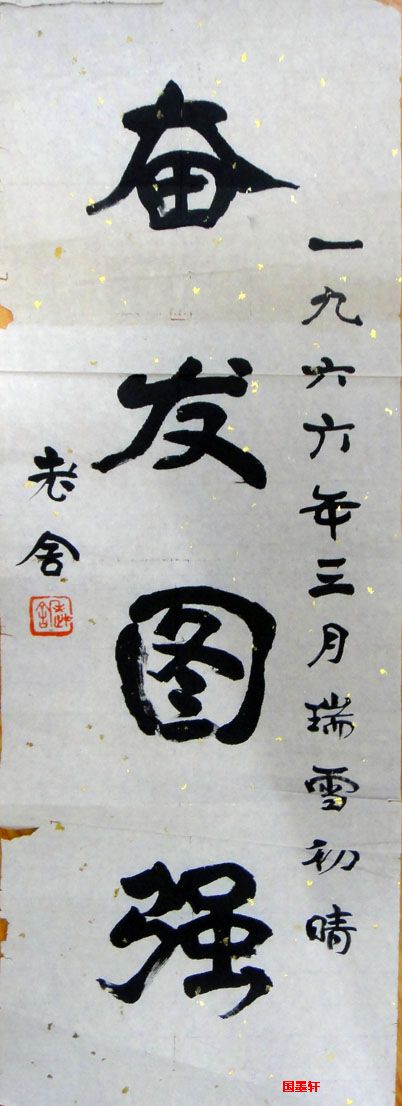 一九六六年三月瑞雪初晴
奋发图强
老舍
老舍
国墨轩